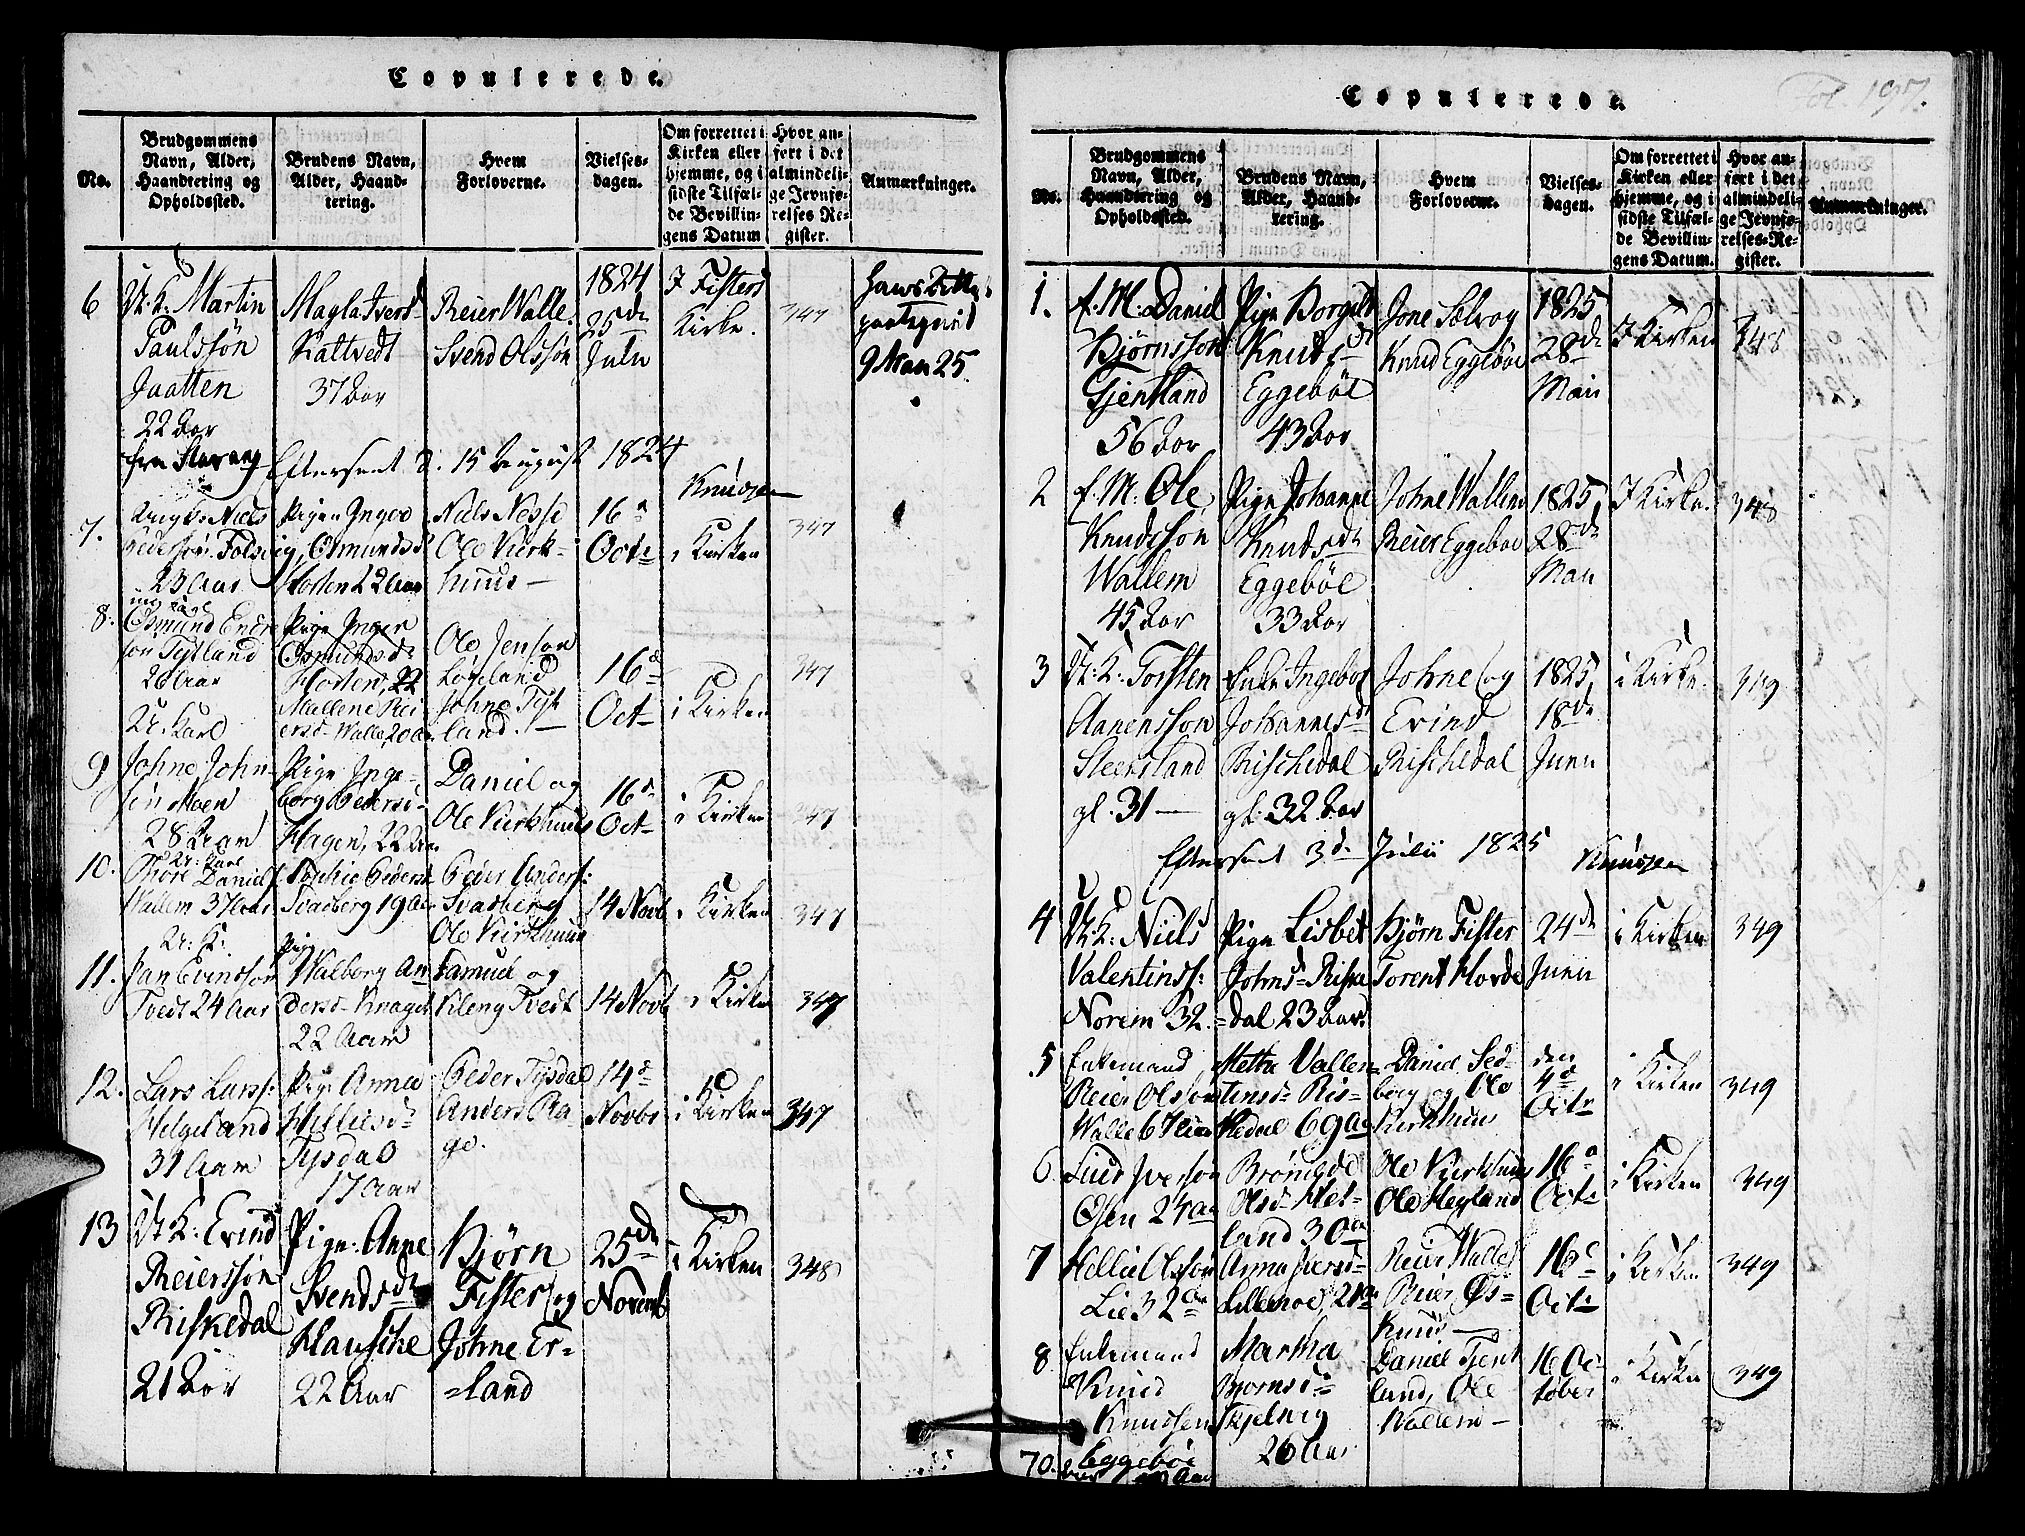 Copulerede.
No.
Brudgommens
Navn, Alder,
Haandtering og
Opholdssted.
Brudens Navn,
Alder, Haand-
tering.
Hvem
Forloverne.
Vielses-
dagen.
Om forrettet i
Kirken eller
hjemme, og i
sidste Tilfæl-
de Bevillin-
gens Datum
Hvor an-
fört i det
almindeli-
ge Jevnfö-
relses Re-
gister.
Anmærkninger.
6
U. K. Martin
Paulssön
Jaatten
22 Aar
fra Stavang
Magla Iversd
Kaltvedt
37 Aar
Reier Walle
Svend Olssön
1824
25de
Julii
I Fisters
Kirke.
347
9 Mai 25.
Eftersent d. 15 August 1824
Knudzen
7.
Niels
Pedersön Folsvig
23 Aar
Pigen Inger
Osmundsd
Horten 22 Aar
Niels Nesse
Ole Kirk-
huus -
16 d
Octr
i Kirken
347
8.
ung Karl
Osmund Endre
sön Tytland
26 Aar
Pige Inger
Osmundsdr
Horten, 22
Malene Rei
ersd Walle, 20 Aar
Ole Jenson
Löveland
Johne Tyt
land. -
16 d
Oct
i Kirken
347
9
U. Karl
Johne John-
sön Moen
28 Aar
Pige Inge-
borg Pedersd
Hagen, 22 Aar
Daniel og
Ole Kirkhuus
16 d
Oct
i Kirken
347
10.
U. Karl
Thore Daniels
Wallem 37 Aar
Sophie Pedersd
Svadberg 19 Aar
Peder Anders:
Svadberg
Ole Kirkhuus
14 Novb
i Kirken
347
11.
U. K.
Jan Evindsön
Tvedt 24 Aar
Pige
Walborg An
dersd Knaget
22 Aar
Samuel og
Kileng Tvedt
14 Novb
i Kirken
347
12.
Lars Larss:
Helgeland
31 Aar
Pige Anna
Williesdr
Tysdal
17 Aar
Peder Tysdal
Anders Ra-
ge.
14 d
Novbr
i Kirken
347
13
U. K. Evind
Reierssön
Riskedal
21 Aar
Pige Anne
Svendsdtr
Hauske
22 Aar
Björn
Fister og
Johne Er-
=land
25de
Novemb
i Kirken
348
Copulerede.
Fol. 197.
No.
Brudgommens
Navn, Alder,
Haandtering og
Opholdssted.
Brudens Navn,
Alder, Haand-
tering.
Hvem
Forloverne.
Vielses-
dagen.
Om forrettet i
Kirken eller
hjemme, og i
sidste Tilfæl-
de Bevillin-
gens Datum.
Hvor an-
fört i det
almindeli-
ge Jevnfö-
relses-Re-
gister.
Anmærkninger.
1.
E. M. Daniel
Björnssön
Gjentland
56 Aar
Pige Borgild
Knudsdr
Eggeböe
43 Aar
Jone Solvog
Knud Eggeböe
1825
28de
Maii
I Kirken
348
2
E. M. Ole
Knudssön
Wallem
45 Aar
Pige Johanne
Knudsdr
Eggeböe
33 Aar
Johne Wallem
Reier Eggeböe
1825
28de
Maii
I Kirken
348
3
U. K. Torsten
Aanenssön
Steensland
gl. 31 -
Enke Ingebor
Johannesdr
Rischedal
gl. 32 Aar
Johne og
Evind
Rischedal
1825
18de
Junii
i Kirke
349
Eftersent 3de Julii 1825
Knudzen
4
U. K. Niels
Valentinss:
Norem 32.
Pige Lisbet
Johnsd Riske
=dal 23 Aar
Björn Fister
Torent Hovde
24de
Junii
i Kirken
349
5
Enkemand
Reier Olsson
Walle 67 Aar
Metha Vallen-
tinsd Ris-
kedal 69 Aar
Daniel Sed-
berg og Ole
Kirkhuus
den
4de
Octr
i Kirken
349
6
Iverson
Osen 24 Aar
Bronilde
Olsd Het-
land 30 Aar
Ole Kirkhuus
Ole Heyland
16 d
Octr
i Kirken
349
7
Hellie Olssön
Lie 32 Aar
Anna Iversd
Lillemoe, 21 Aar
Reier Walle
Reier Øs-
knud -
16 d
Octr
i Kirken
349
8
Enkemand
Knud
Knudsen
Eggeböe
Martha
Bjornsdr
Skjelvig
26 Aar
Daniel Tjent
land, Ole
Wallem -
16 Oc
tober
i Kirken
349
70.